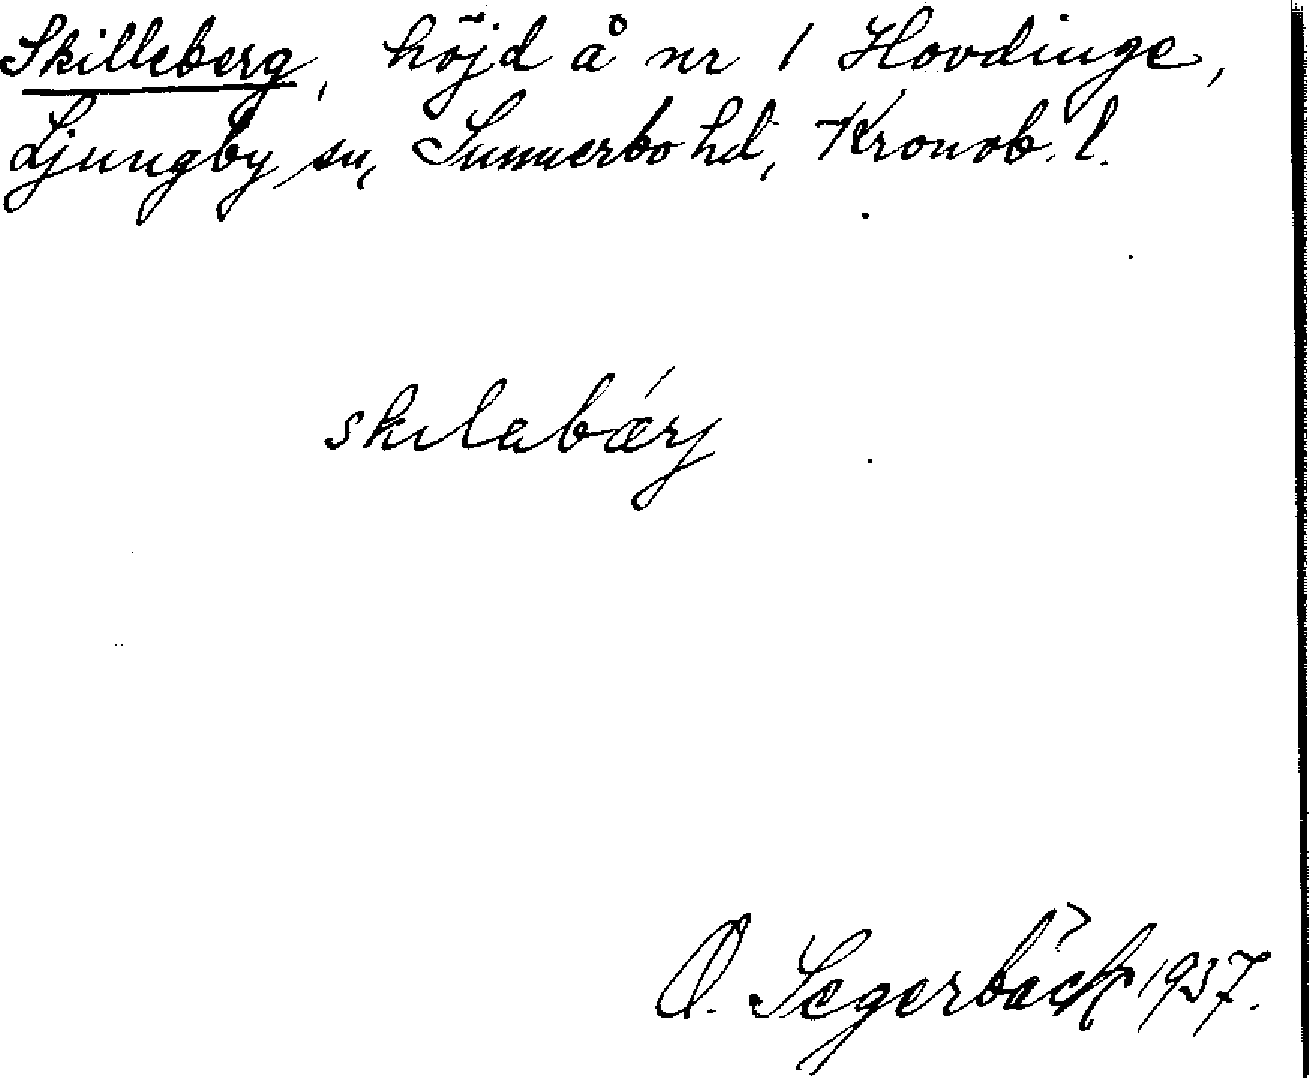 Skilleberg, höjd å nr 1 Hovdinge,
Ljungby sn, Sunnerbo hd, Kronob. l.
skilabærj
O. Segerbäck 1937.